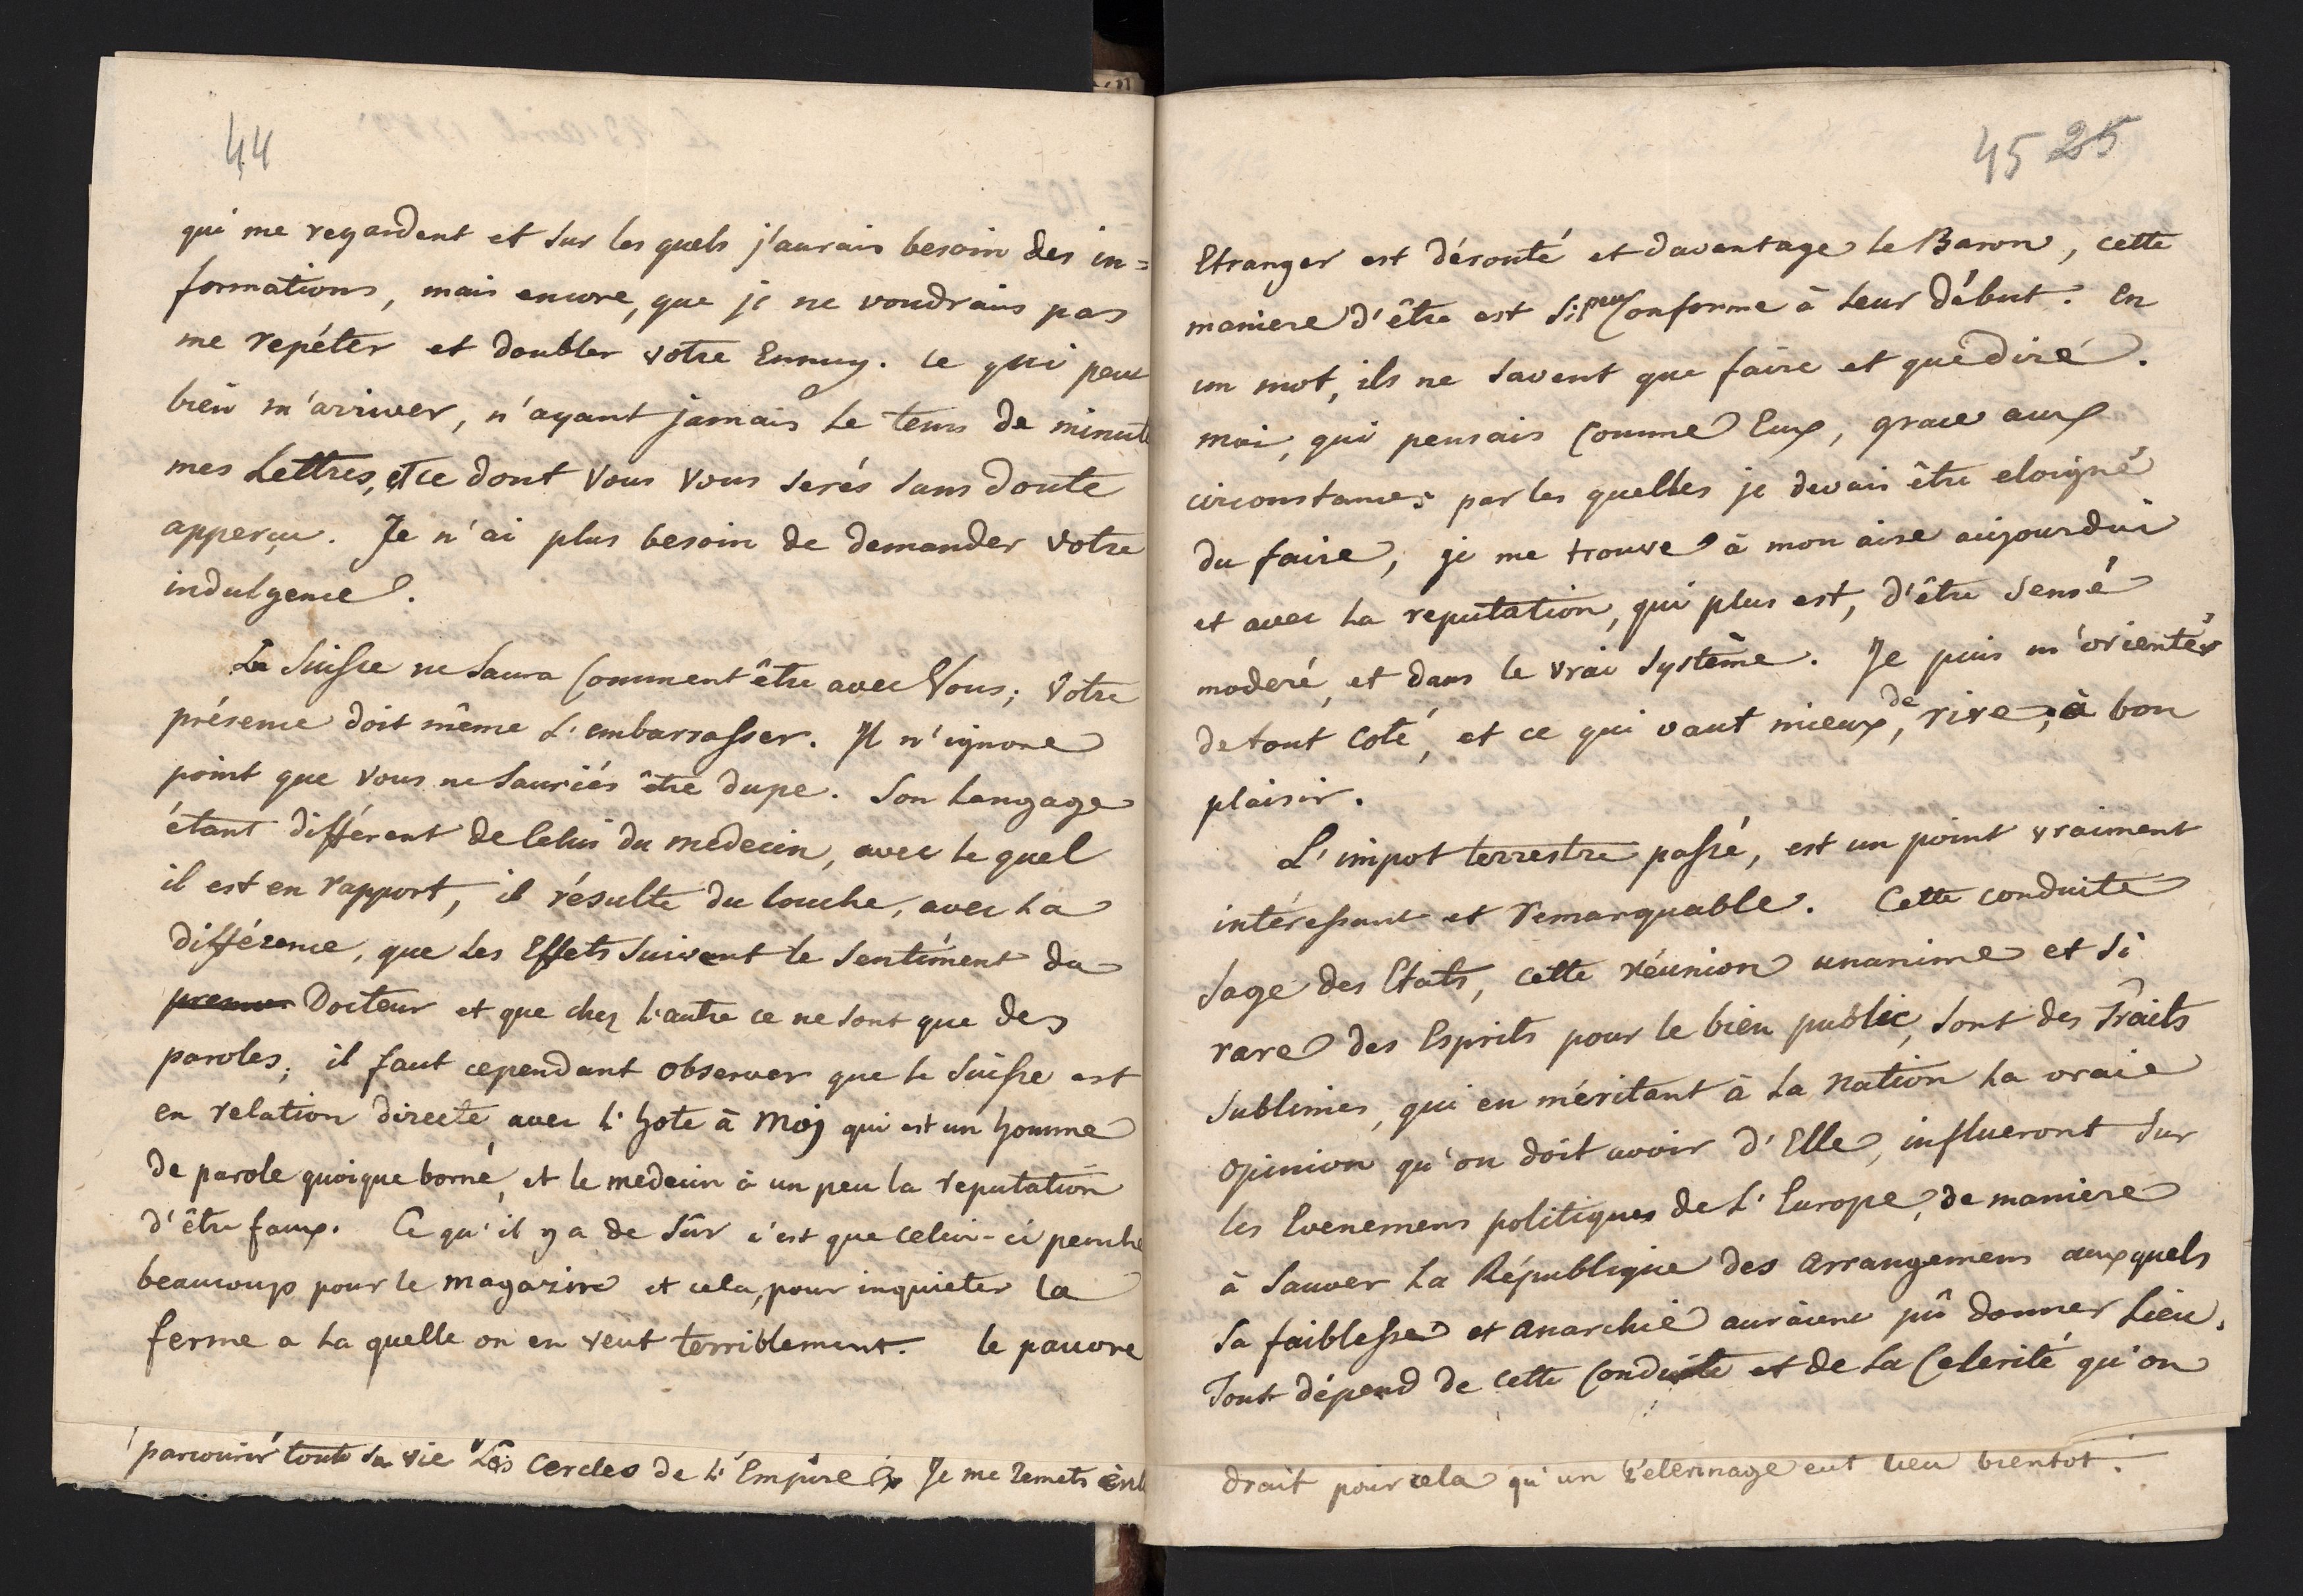 44
qui me regardent et sur les quels j'aurais besoin des in=
formations, mais encore, que je ne voudrais pas
me repéter et doubler votre Ennuy. ce qui peut
bien m'arriver, n'ayant jamais le tems de minut
mes Lettres, et ce dont Vous Vous serés sans doute
apperçu. Je n'ai plus besoin de demander votre
indulgence.
Le Suisse ne saura Comment être avec Vous; Votre
présence doit même L'embarrasser. Il n'ignore
point que Vous ne sauriés être dupe. Son Langage
étant différent de Celui du medecin, avec le quel
il est en rapport, il résulte du louche, avec la
différence, que les Effets suivent le sentiment du
premier Docteur et que chez l'autre ce ne sont que des
paroles; il faut cependant observer que le Suisse est
en relation directe avec l'hote à Moj qui est un homme
de parole quoique borné, et le medecin à un peu la réputation
d'être faux. Ce qu'il y a de sûr c'est que celui-ci penche
beaucoup pour le magazin et cela, pour inquieter la
ferme a la quelle on en veut terriblement. le pauvre
parcourir toute sa vie Les Cercles de L'Empire Je me remets
45 25
Etranger est dérouté et davantage le Baron, cette
maniere d'être est si peu Conforme à leur début. En
un mot, ils ne savent que faire et que dire.
moi, qui pensais Comme Eux, grace aux
circonstances par les quelles je devais être eloigné
du faire, je me trouve à mon aise aujourdui
et avec la reputation, qui plus est, d'être sensé
moderé, et dans le vrai système. Je puis m'orienter
de tout coté, et ce qui vaut mieux, de rire, à bon
plaisir.
L'impot terrestre passé, est un point vraiment
intéressant et remarquable. Cette conduite
sage des Etats, cette réunion unanime et si
rare des Esprits pour le bien public, sont des Traits
sublimes, qui en méritant à la Nation la vraie
opinion qu'on doit avoir d'Elle, influeront sur
les Evenemens politiques de L'Europe, de maniere
à Sauver la République des arrangemens auxquels
sa faiblesse et anarchie auraient pû donner Lieu.
Tout dépend de cette Conduite et de la Celerité qu'on
drait pour cela qu'un Pelerinage eut lieu bientot.